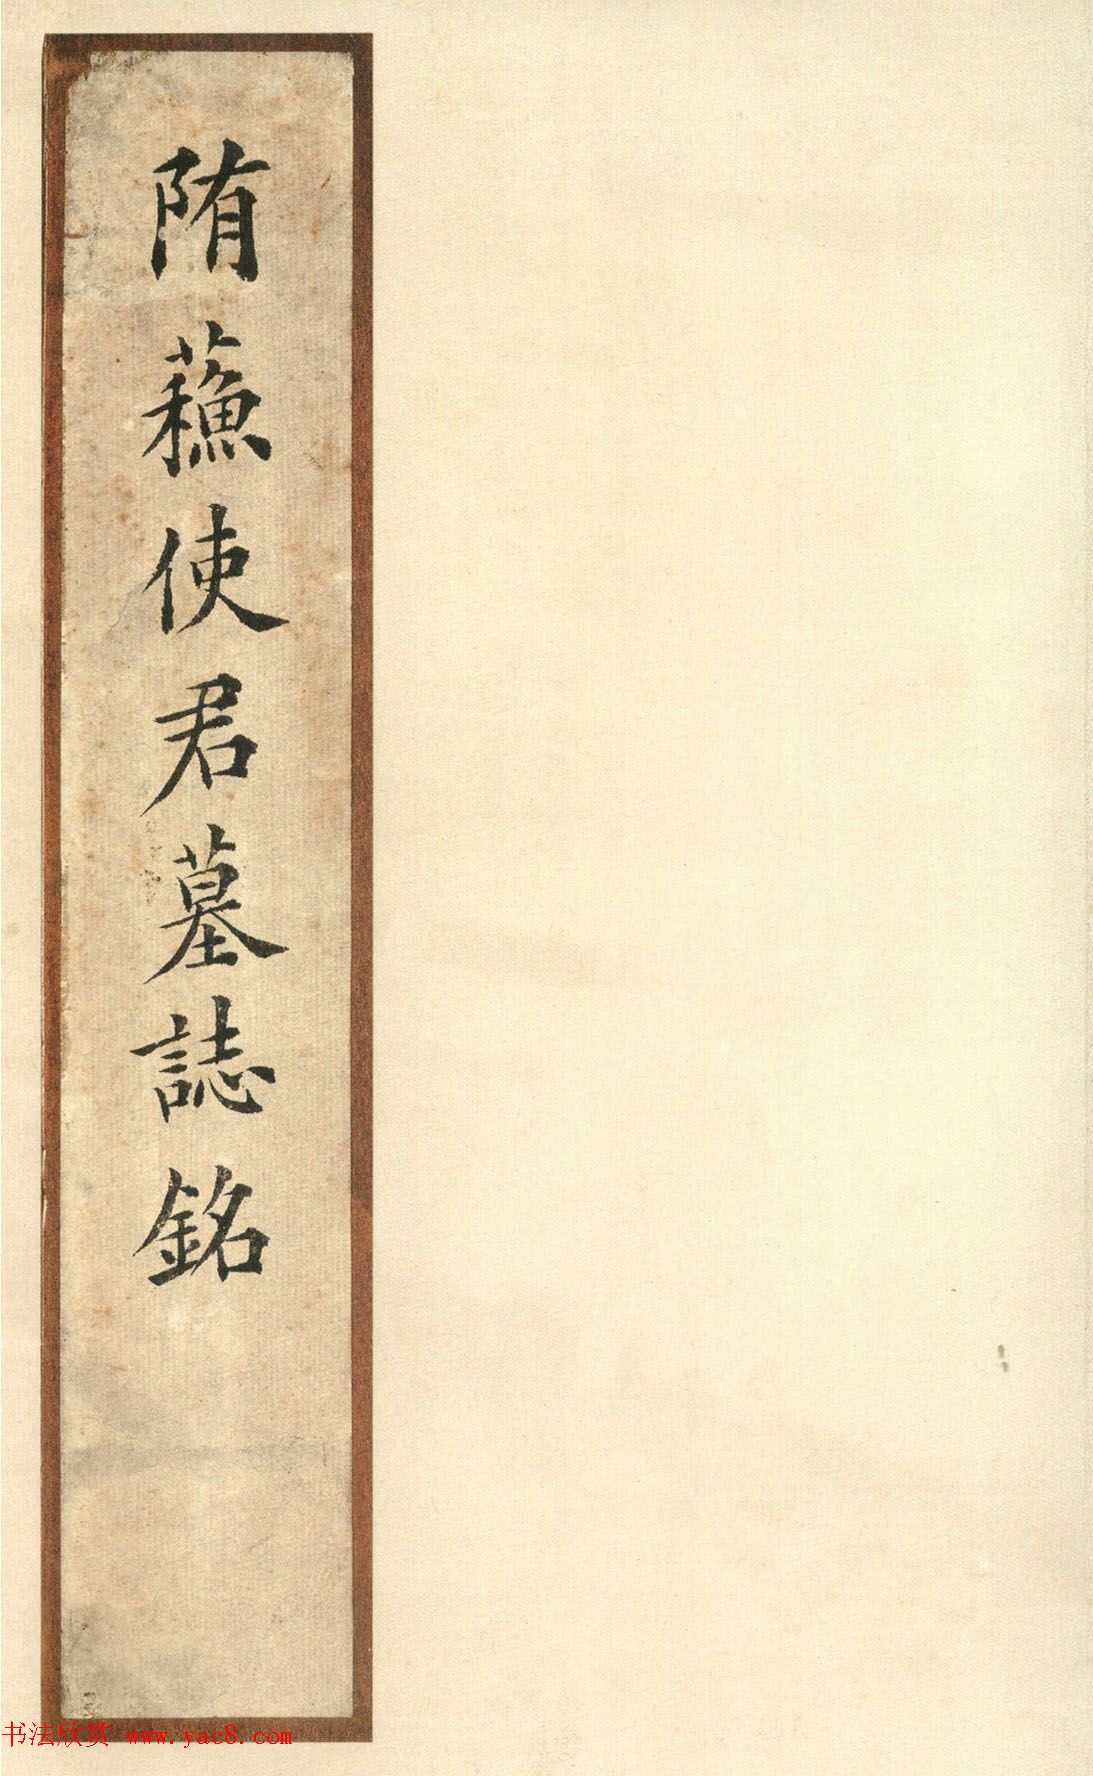 陏蘓使君墓誌銘
书法欣赏 www.yac8.com